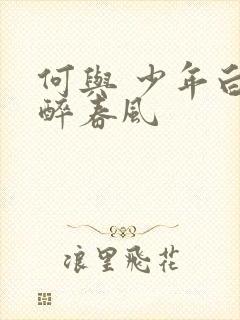 何與 少年白
醉春風
浪里飛花